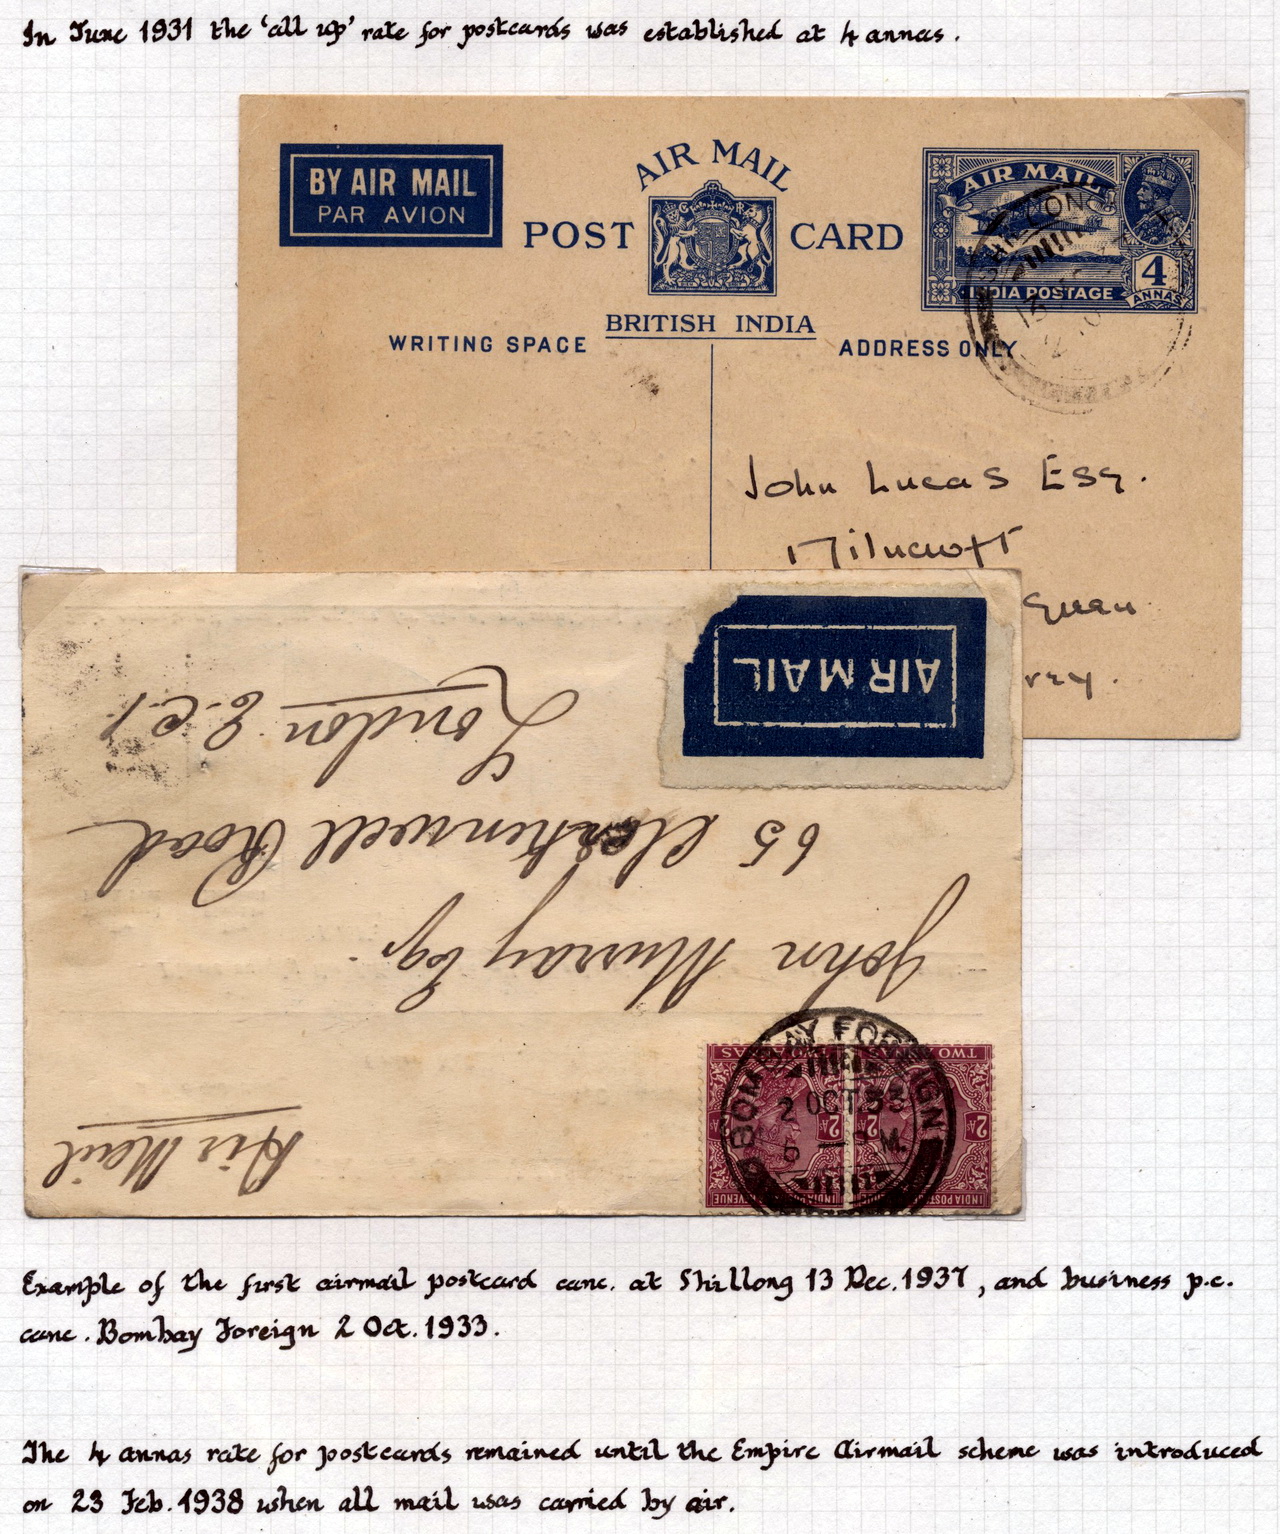 In June 1931 the 'all up' rate for postcards was established at 4 annas.
BY AIR MAIL
PAR AVION
AIR MAIL
POST CARD
BRITISH INDIA
WRITING SPACE
ADDRESS ONLY
AIR MAIL
4
ANNAS
INDIA POSTAGE
John Lucas Esq.
AIR MAIL
London E.C.1.
65 Clerkenwell Road
John Murray Esq.
Air Mail
BOMBAY FOREIGN
2 OCT. 33
TWO
2 As
2 As
INDIA POSTAGE
Example of the first airmail postcard canc. at Shillong 13 Dec. 1937, and business p.c.
canc. Bombay Foreign 2 Oct. 1933.
The 4 annas rate for postcards remained until the Empire Airmail scheme was introduced
on 23 Feb. 1938 when all mail was carried by air.